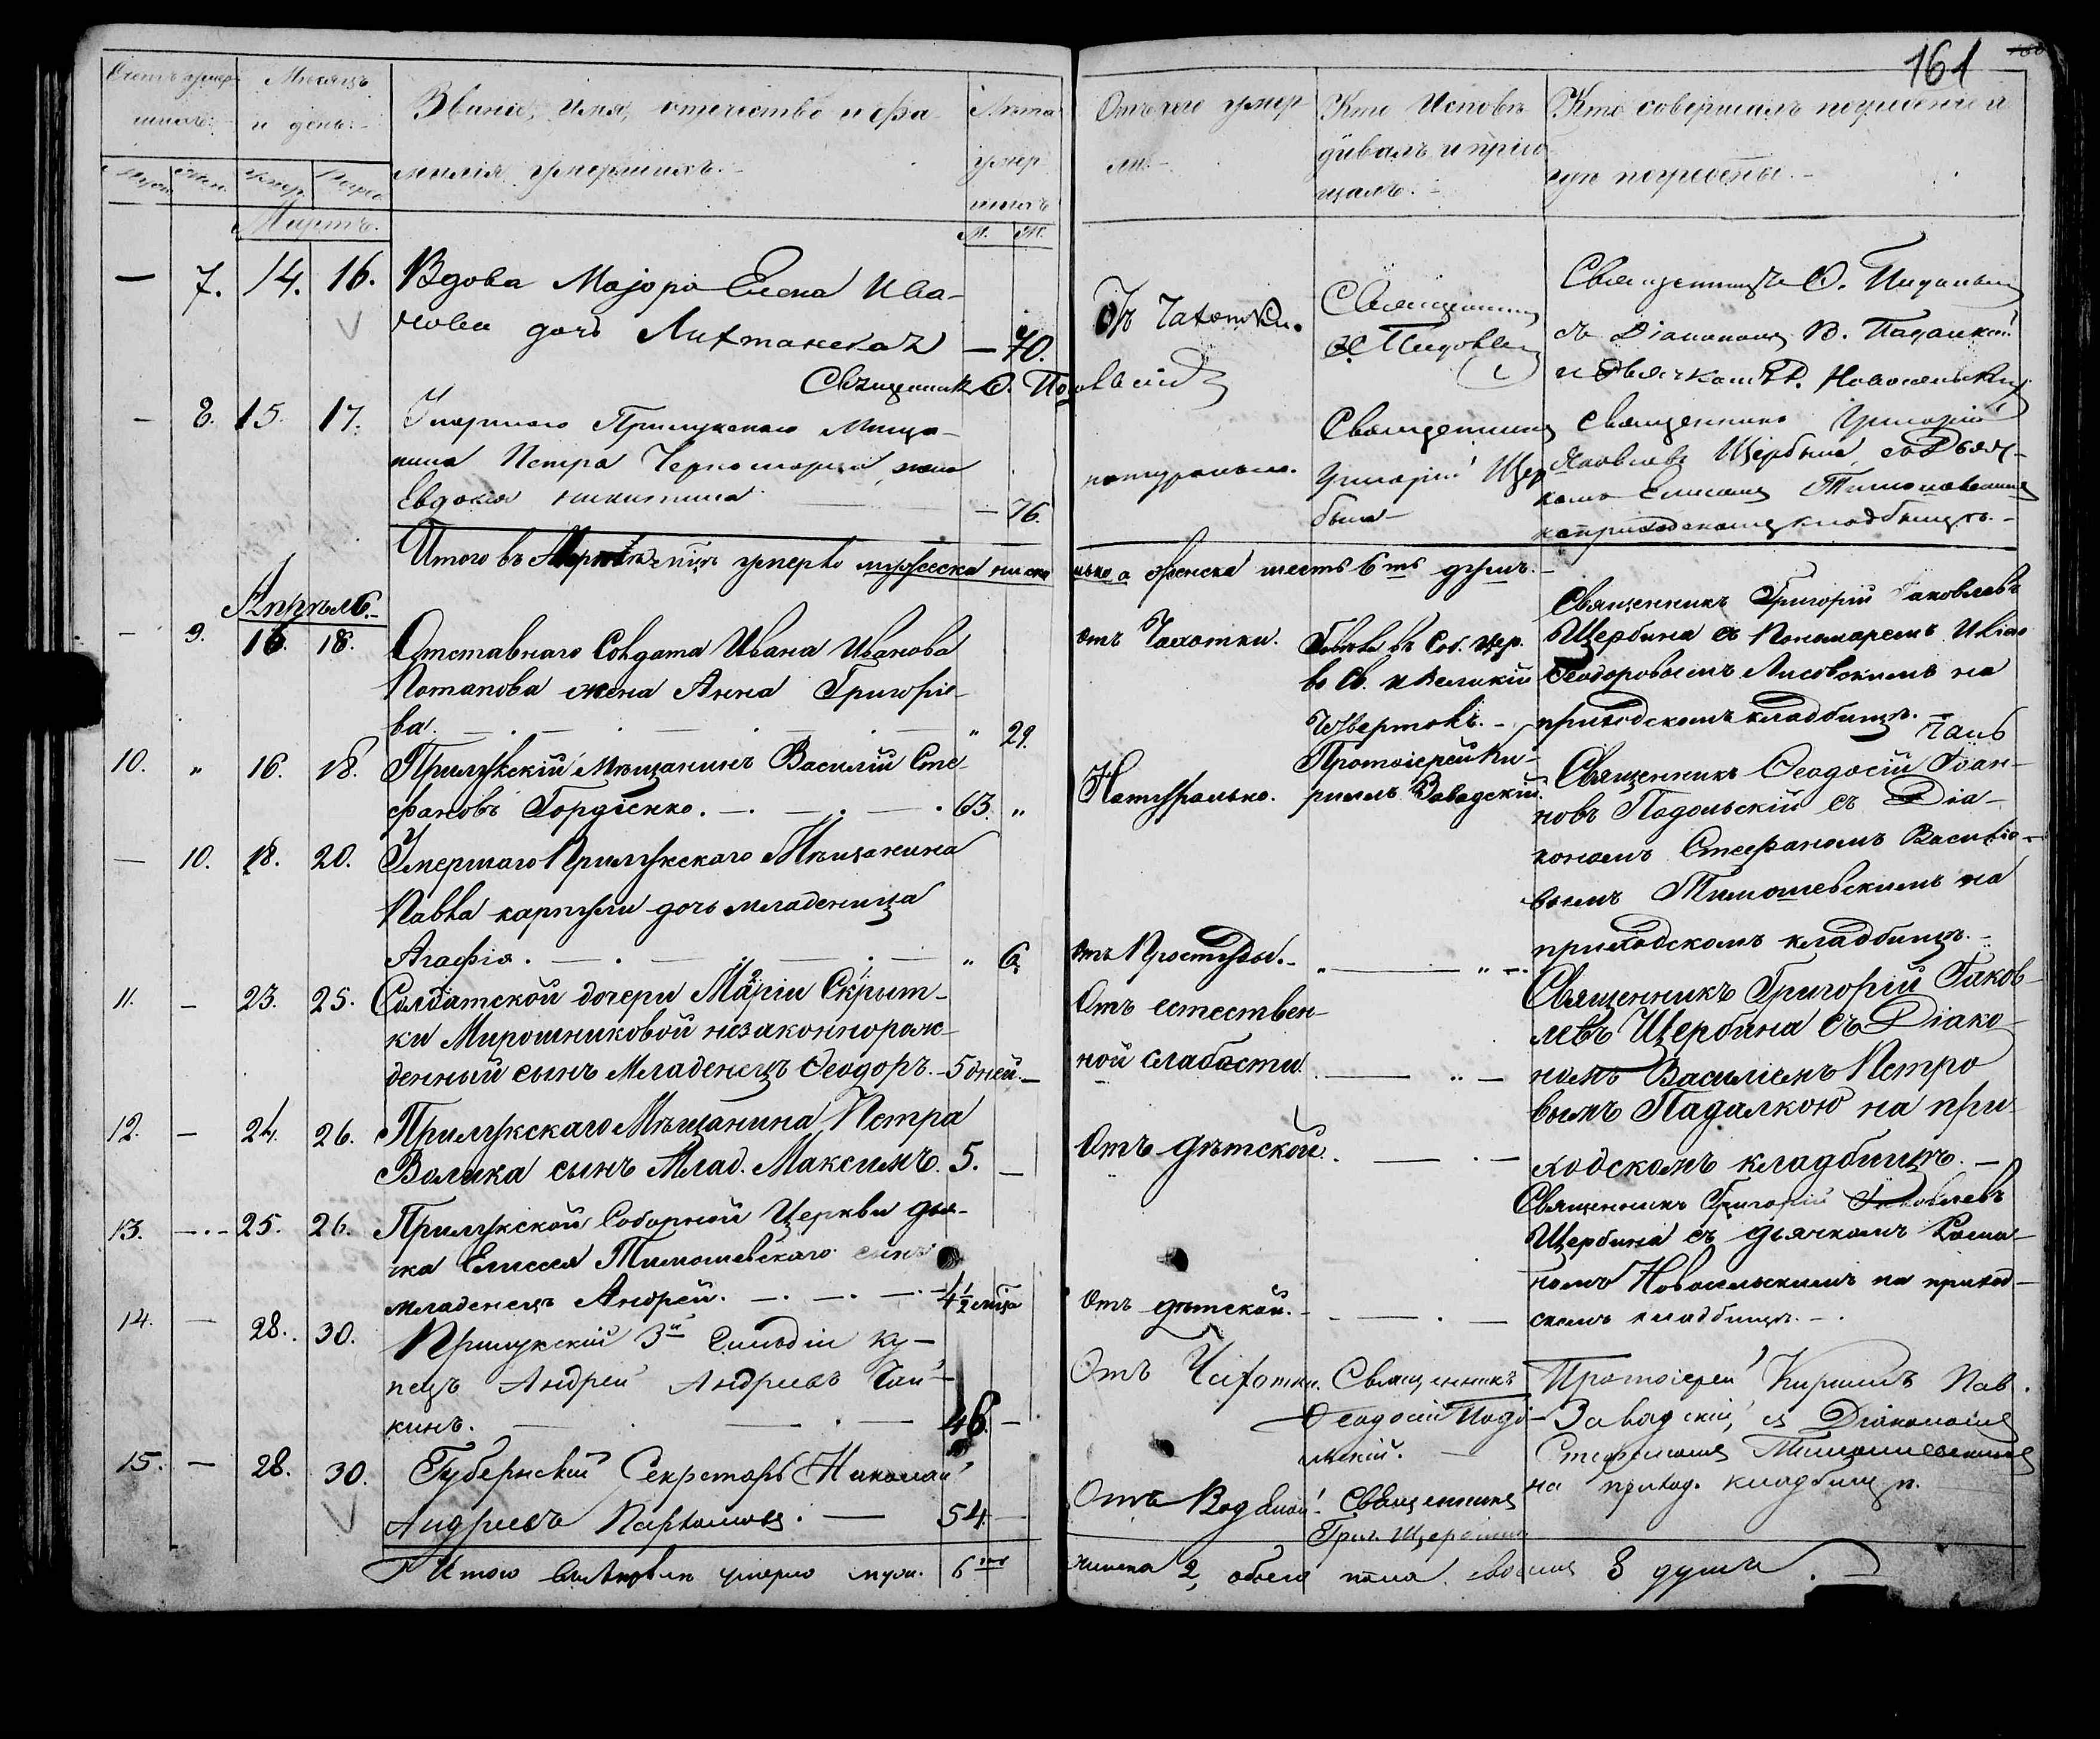 161
Счетъ умер-
шихъ.
Мѣсяцъ
и день.
Званіе, имя, отечество и фа-
милія умершихъ.
Лѣта
умер
шихъ
Муж.
Жен.
Умер.
Погр.
М. Ж.
Отъ чего умер
ли.
Кто исповѣ
дывалъ и пріоб
щалъ.
Кто совершалъ погребеніе и
гдѣ погребены.
Мартъ.
— 7. 14. 16. Вдова Маіора Елена Ива-
нова дочь Лихтанская — 70.
Отъ Чахотки.
Священникъ
Священникъ Ѳ.
съ Діакономъ В. Падалкой
и Дьячкомъ Р. Новосельскимъ
Священникъ Ѳ. Подольскій
— 8. 15. 17. Умершаго Прилукскаго Мѣща-
нина Петра жена
Евдокія Никитина — 76.
натурально.
Священникъ
Григорій Щер
бина
Священникъ Григорій
Яковлевъ Щербина съ Дьяч-
комъ Елисеемъ Тимошевскимъ
на приходскомъ кладбищѣ.
Итого въ Мартѣ м-цѣ умерло мужеска ни сколько а женска шесть 6ть душъ.
Апрѣль.
— 9. 16. 18. Отставнаго Солдата Ивана Иванова
Потапова жена Анна Григоріе-
ва. " 29.
Отъ Чахотки.
въ Соб. Цер.
во Св. и Великій
Четвертокъ.
Священникъ Григорій Іаковлевъ
Щербина съ Пономаремъ
Ѳеодоровымъ Лисовскимъ на
приходскомъ кладбищѣ.
10. " 16. 18. Прилукскій Мѣщанинъ Василій Сте-
фановъ Гордіенко. 63. "
Натурально.
Протоіерей Ки-
риллъ Завадскій.
Священникъ Ѳеодосій Іоан-
новъ Подольскій съ Діа-
кономъ Стефаномъ Василіе-
вымъ Тимошевскимъ на
приходскомъ кладбищѣ.
— 10. 18. 20. Умершаго Прилукскаго Мѣщанина
Павла дочь младеница
Агафія. " 6.
Отъ Простуды.
11. — 23. 25. Солдатской дочери Маріи Скрыт-
ки Мирошниковой незаконнорож-
денный сынъ Младенецъ Ѳеодоръ. 5 дней. —
Отъ естествен-
ной слабости
Священникъ Григорій Іаков-
левъ Щербина съ Діако-
номъ Василіемъ Петро
вымъ Падалкою на при-
ходскомъ кладбищѣ.
12. — 24. 26. Прилукскаго Мѣщанина Петра
Волика сынъ Млад. Максимъ. 5. —
Отъ дѣтской.
13. — 25. 26. Прилукской Соборной Церкви дья-
чка Елисея Тимошевскаго сынъ
младенецъ Андрей. 4½ мѣся
Отъ дѣтской.
Священникъ Григорій Іаковлевъ
Щербина съ дьячкомъ Рома-
номъ Новосельскимъ на приход-
скомъ кладбищѣ.
14. — 28. 30. Прилукскій 3й Гильдіи ку-
пецъ Андрей Андреевъ Чай-
кинъ. 46. —
Отъ Чахотки.
Священникъ
Ѳеодосій Подо-
льскій.
Протоіерей Кириллъ Пав.
Завадскій, съ Діакономъ
Стефаномъ Тимошевскимъ
на приход. кладбищѣ.
15. — 28. 30. Губернскій Секретарь Николай
Андреевъ 54. —
Отъ Водяной.
Священникъ
Григ. Щербина
Итого въ Апрѣлѣ умерло муж. 6ть женска 2, обоего пола 8 душъ.